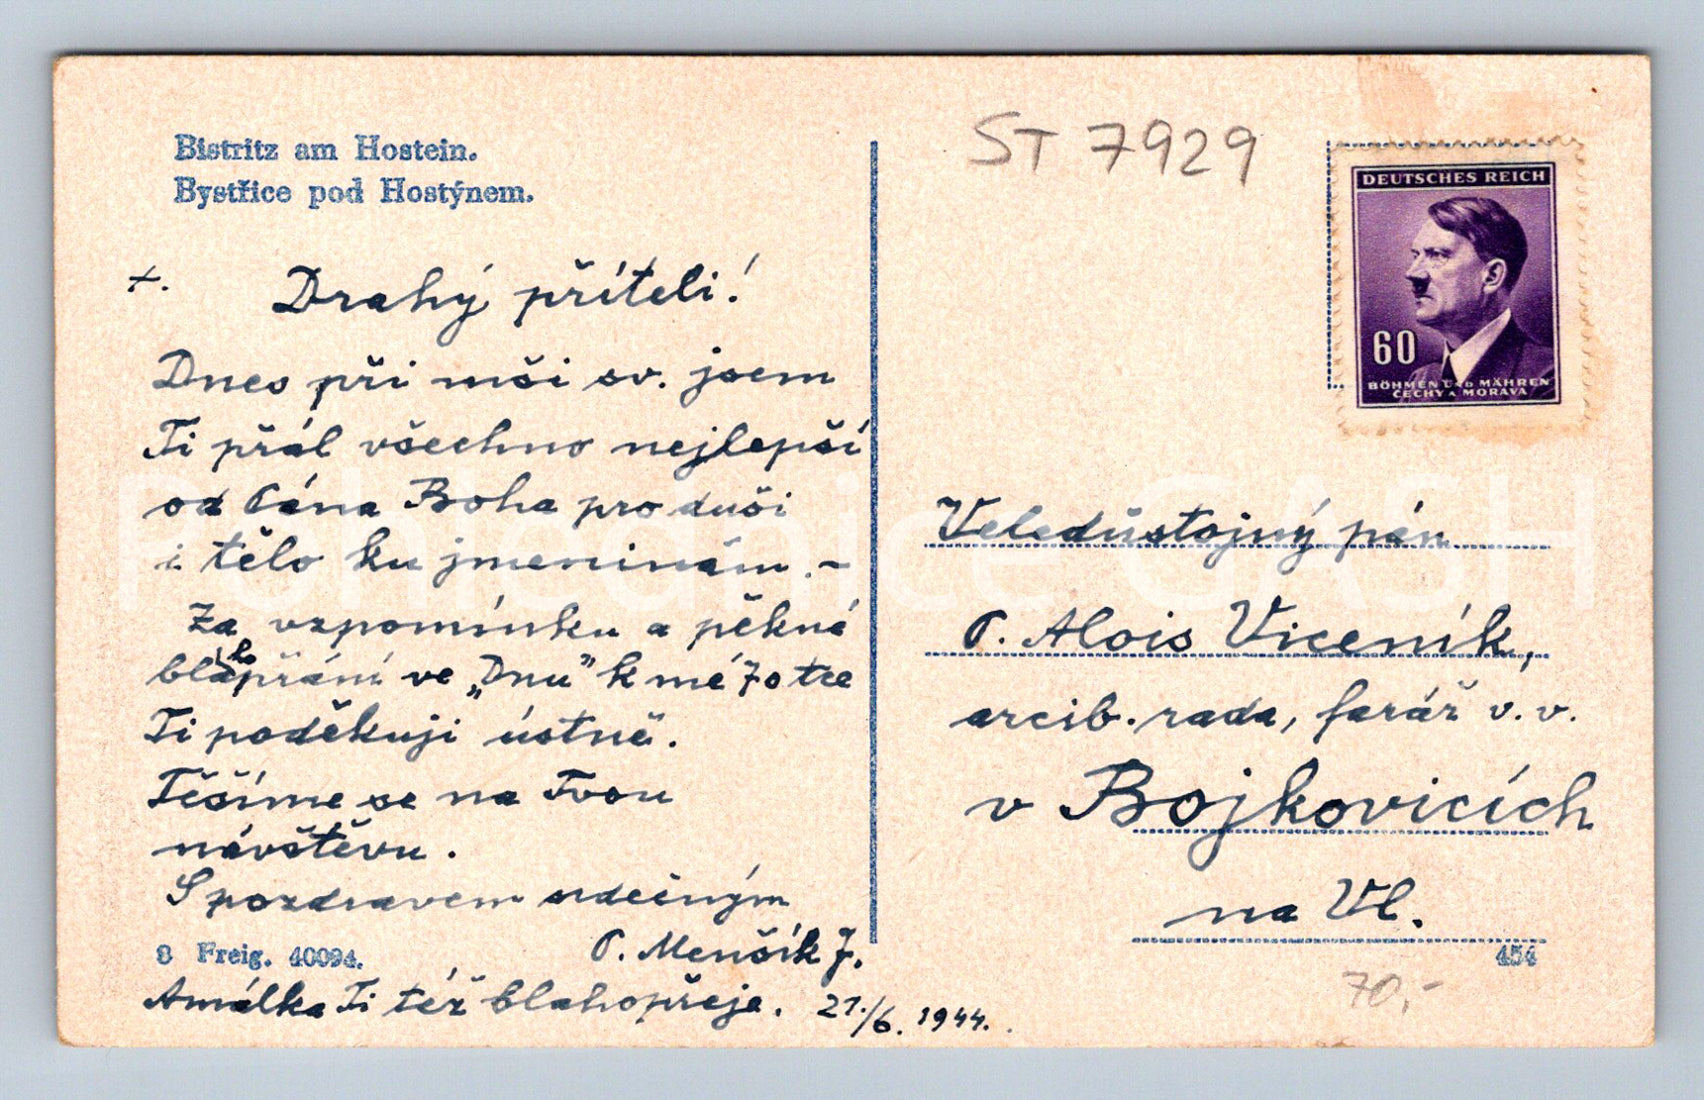 Bistritz am Hostein.
Bystřice pod Hostýnem.
+. Drahý příteli!
Dnes při mši sv. jsem
Ti přál všechno nejlepší
od Pána Boha pro duši
i tělo ku jmeninám. –
Za vzpomínku a pěkná
blahopřání ve „Dnu" k mé 70tce
Ti poděkuji ústně.
Těšíme se na Tvou
návštěvu.
S pozdravem srdečným
P. Menšík J.
8 Freig. 40094.
Amálka Ti též blahopřeje. 21./6. 1944.
ST 7929
DEUTSCHES REICH
60
BÖHMEN UND MÄHREN
ČECHY A MORAVA
Veledůstojný pán
P. Alois Viceník,
arcib. rada, farář v. v.
v Bojkovicích
na Vl.
454
70,-
Pohlednice CASH